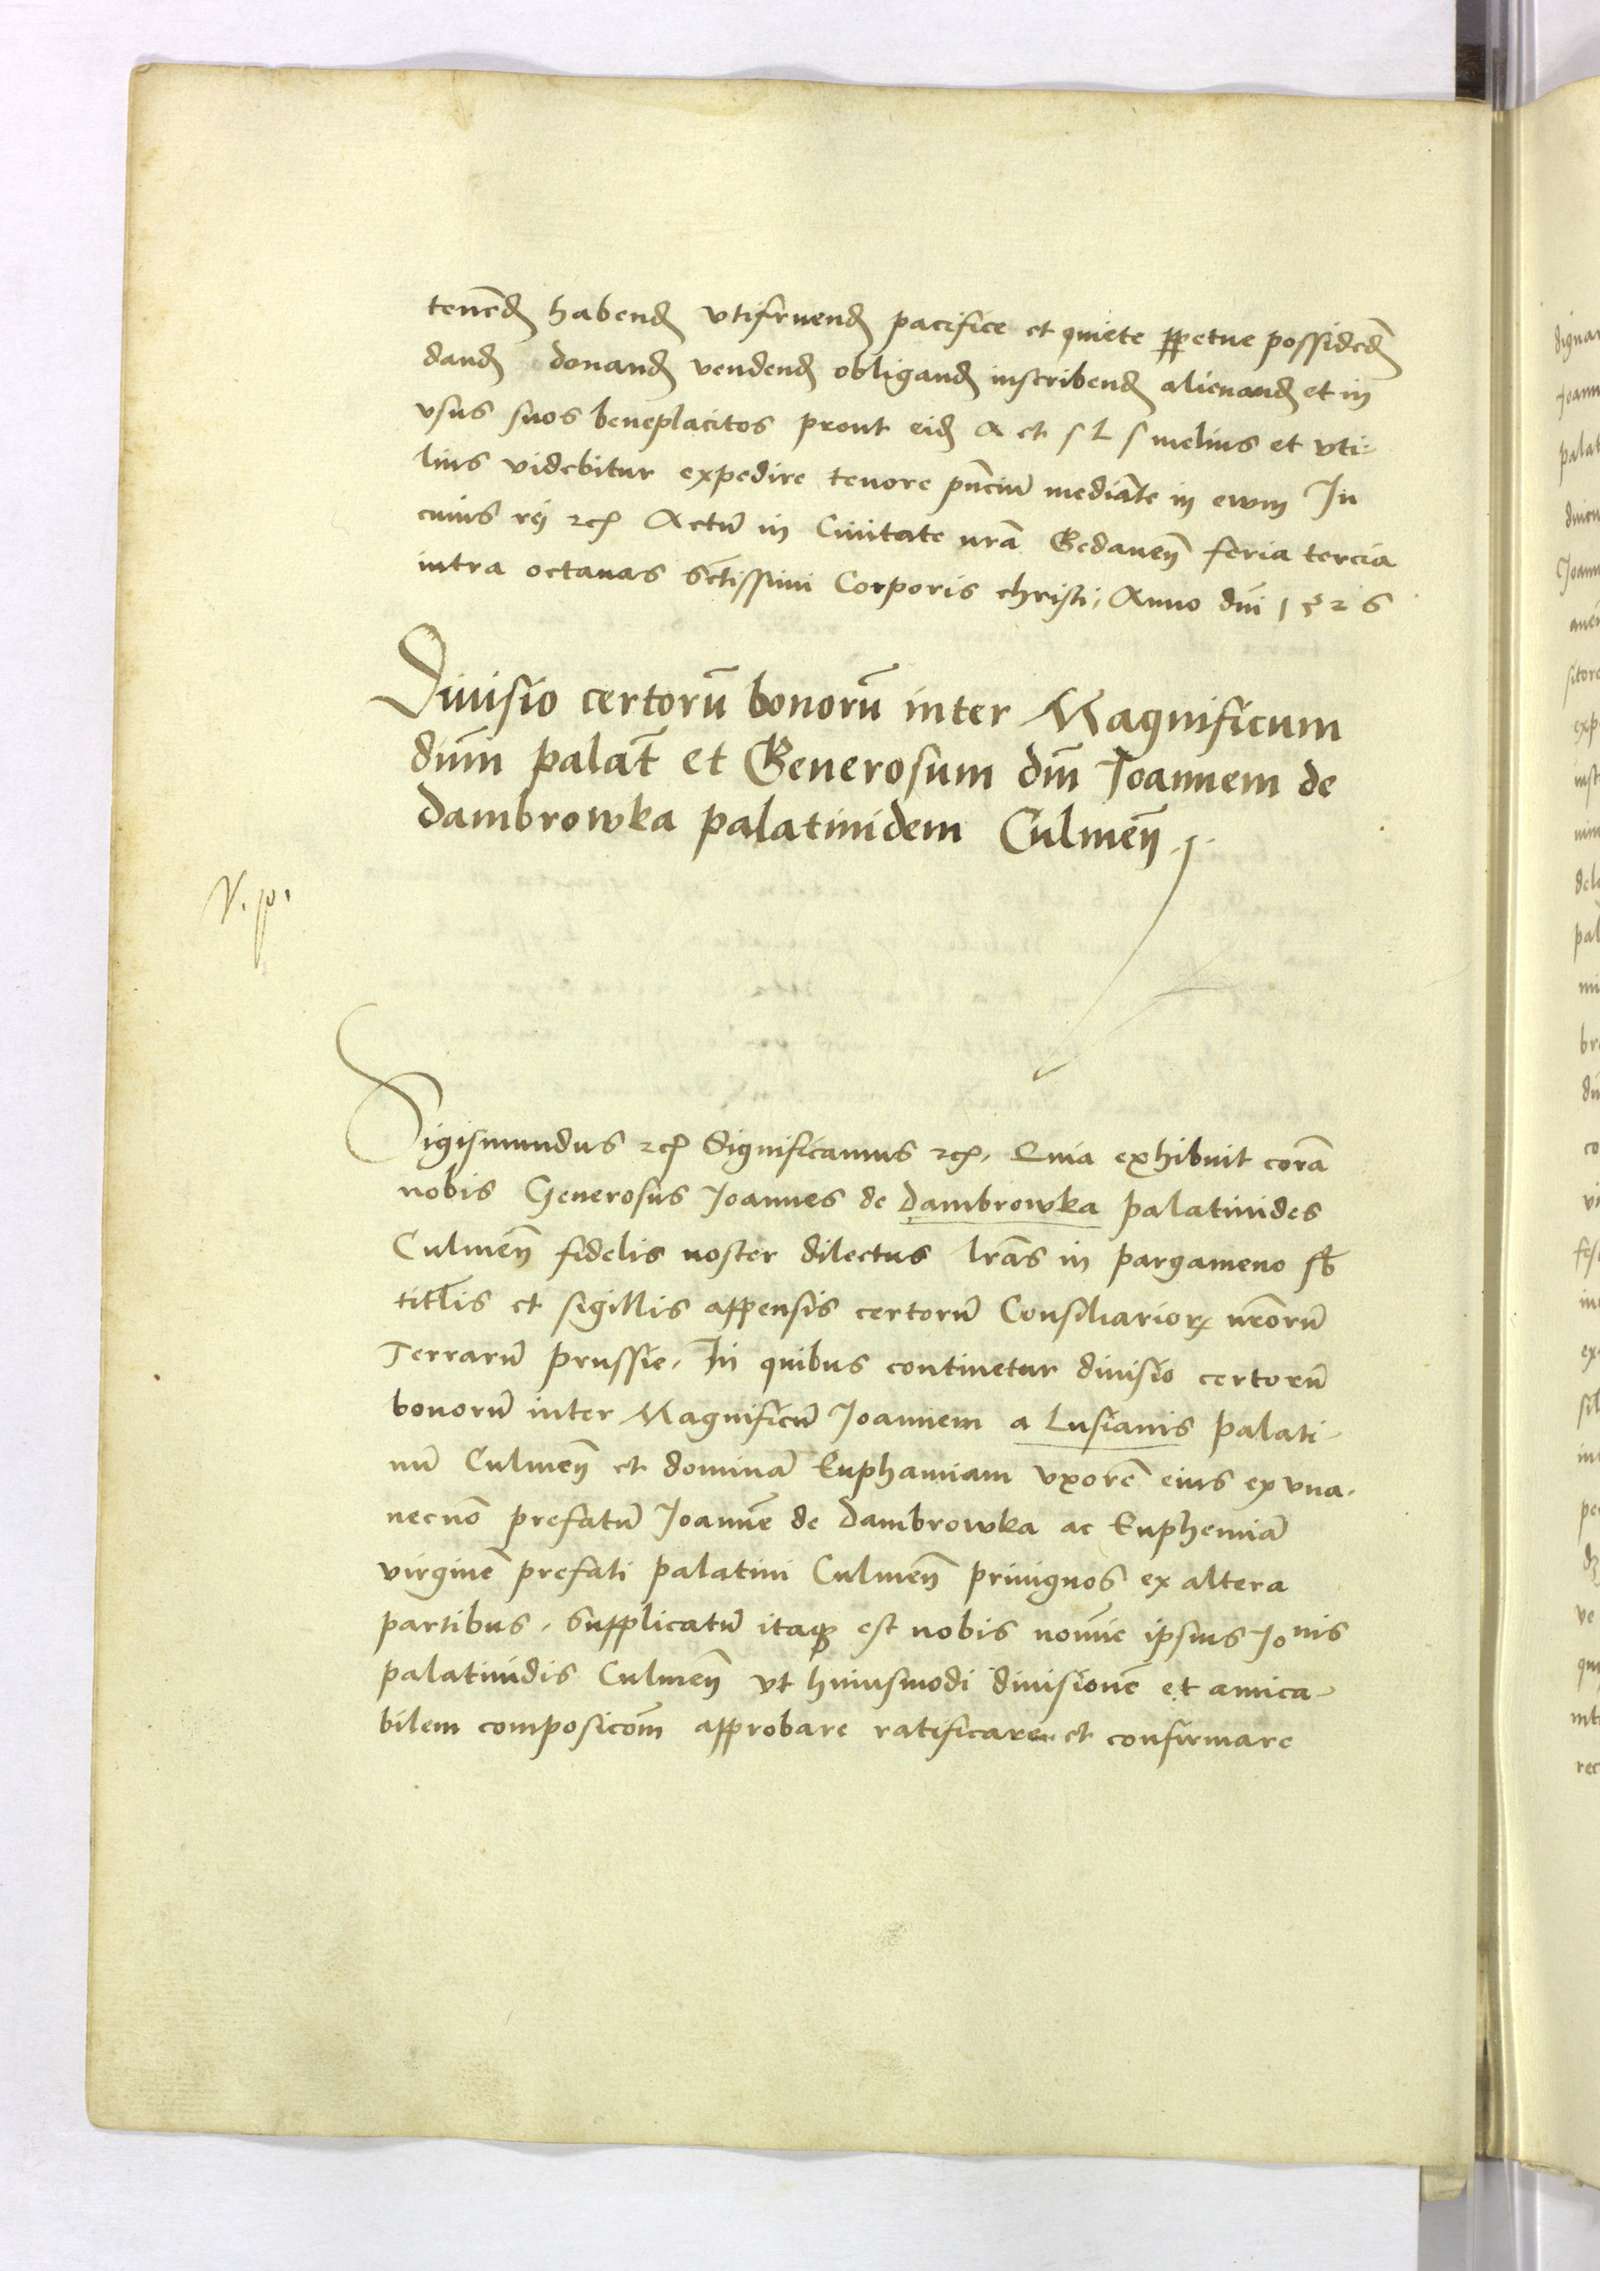 tenēd habend vtifruend pacifice et quiete ppetue possidēd
dand donand vendend obligand inscribend alienand et in
vsus suos beneplacitos prout eid A et s L s melius et vti-
lius videbitur expedire tenore pñcium mediāte in ewm In
cuius rei rc Actū in Ciuitate nrā Gedaneñ feria tercia
intra octauas Sctissimi Corporis christi, Anno dñi 1526
Diuisio certorū bonorū inter Magnificum
dñm palat̄ et Generosum dñm Joannem de
Dambrowka palatinidem Culmeñ
V. p.
Sigismundus rc Significamus rc. Quia exhibuit corā
nobis Generosus Joannes de Dambrowka palatinides
Culmeñ fidelis noster dilectus lrās in pargameno sb
titlis et sigillis appensis certorū Consiliarioꝝ nrōrū
Terrarū prussie. In quibus continetur diuisio certorū
bonorū inter Magnificū Joannem a Lusianis palati-
nū Culmeñ et dominā Euphamiam vxorē eius ex vna.
necnō prefatū Joannē de Dambrowka ac Euphemiā
virginē prefati palatini Culmeñ priuignos ex altera
partibus. Supplicatū itaqꝫ est nobis noīe ipsius Jonis
palatinidis Culmeñ vt huiusmodi diuisionē et amica-
bilem composicoēm approbare ratificare et confirmare